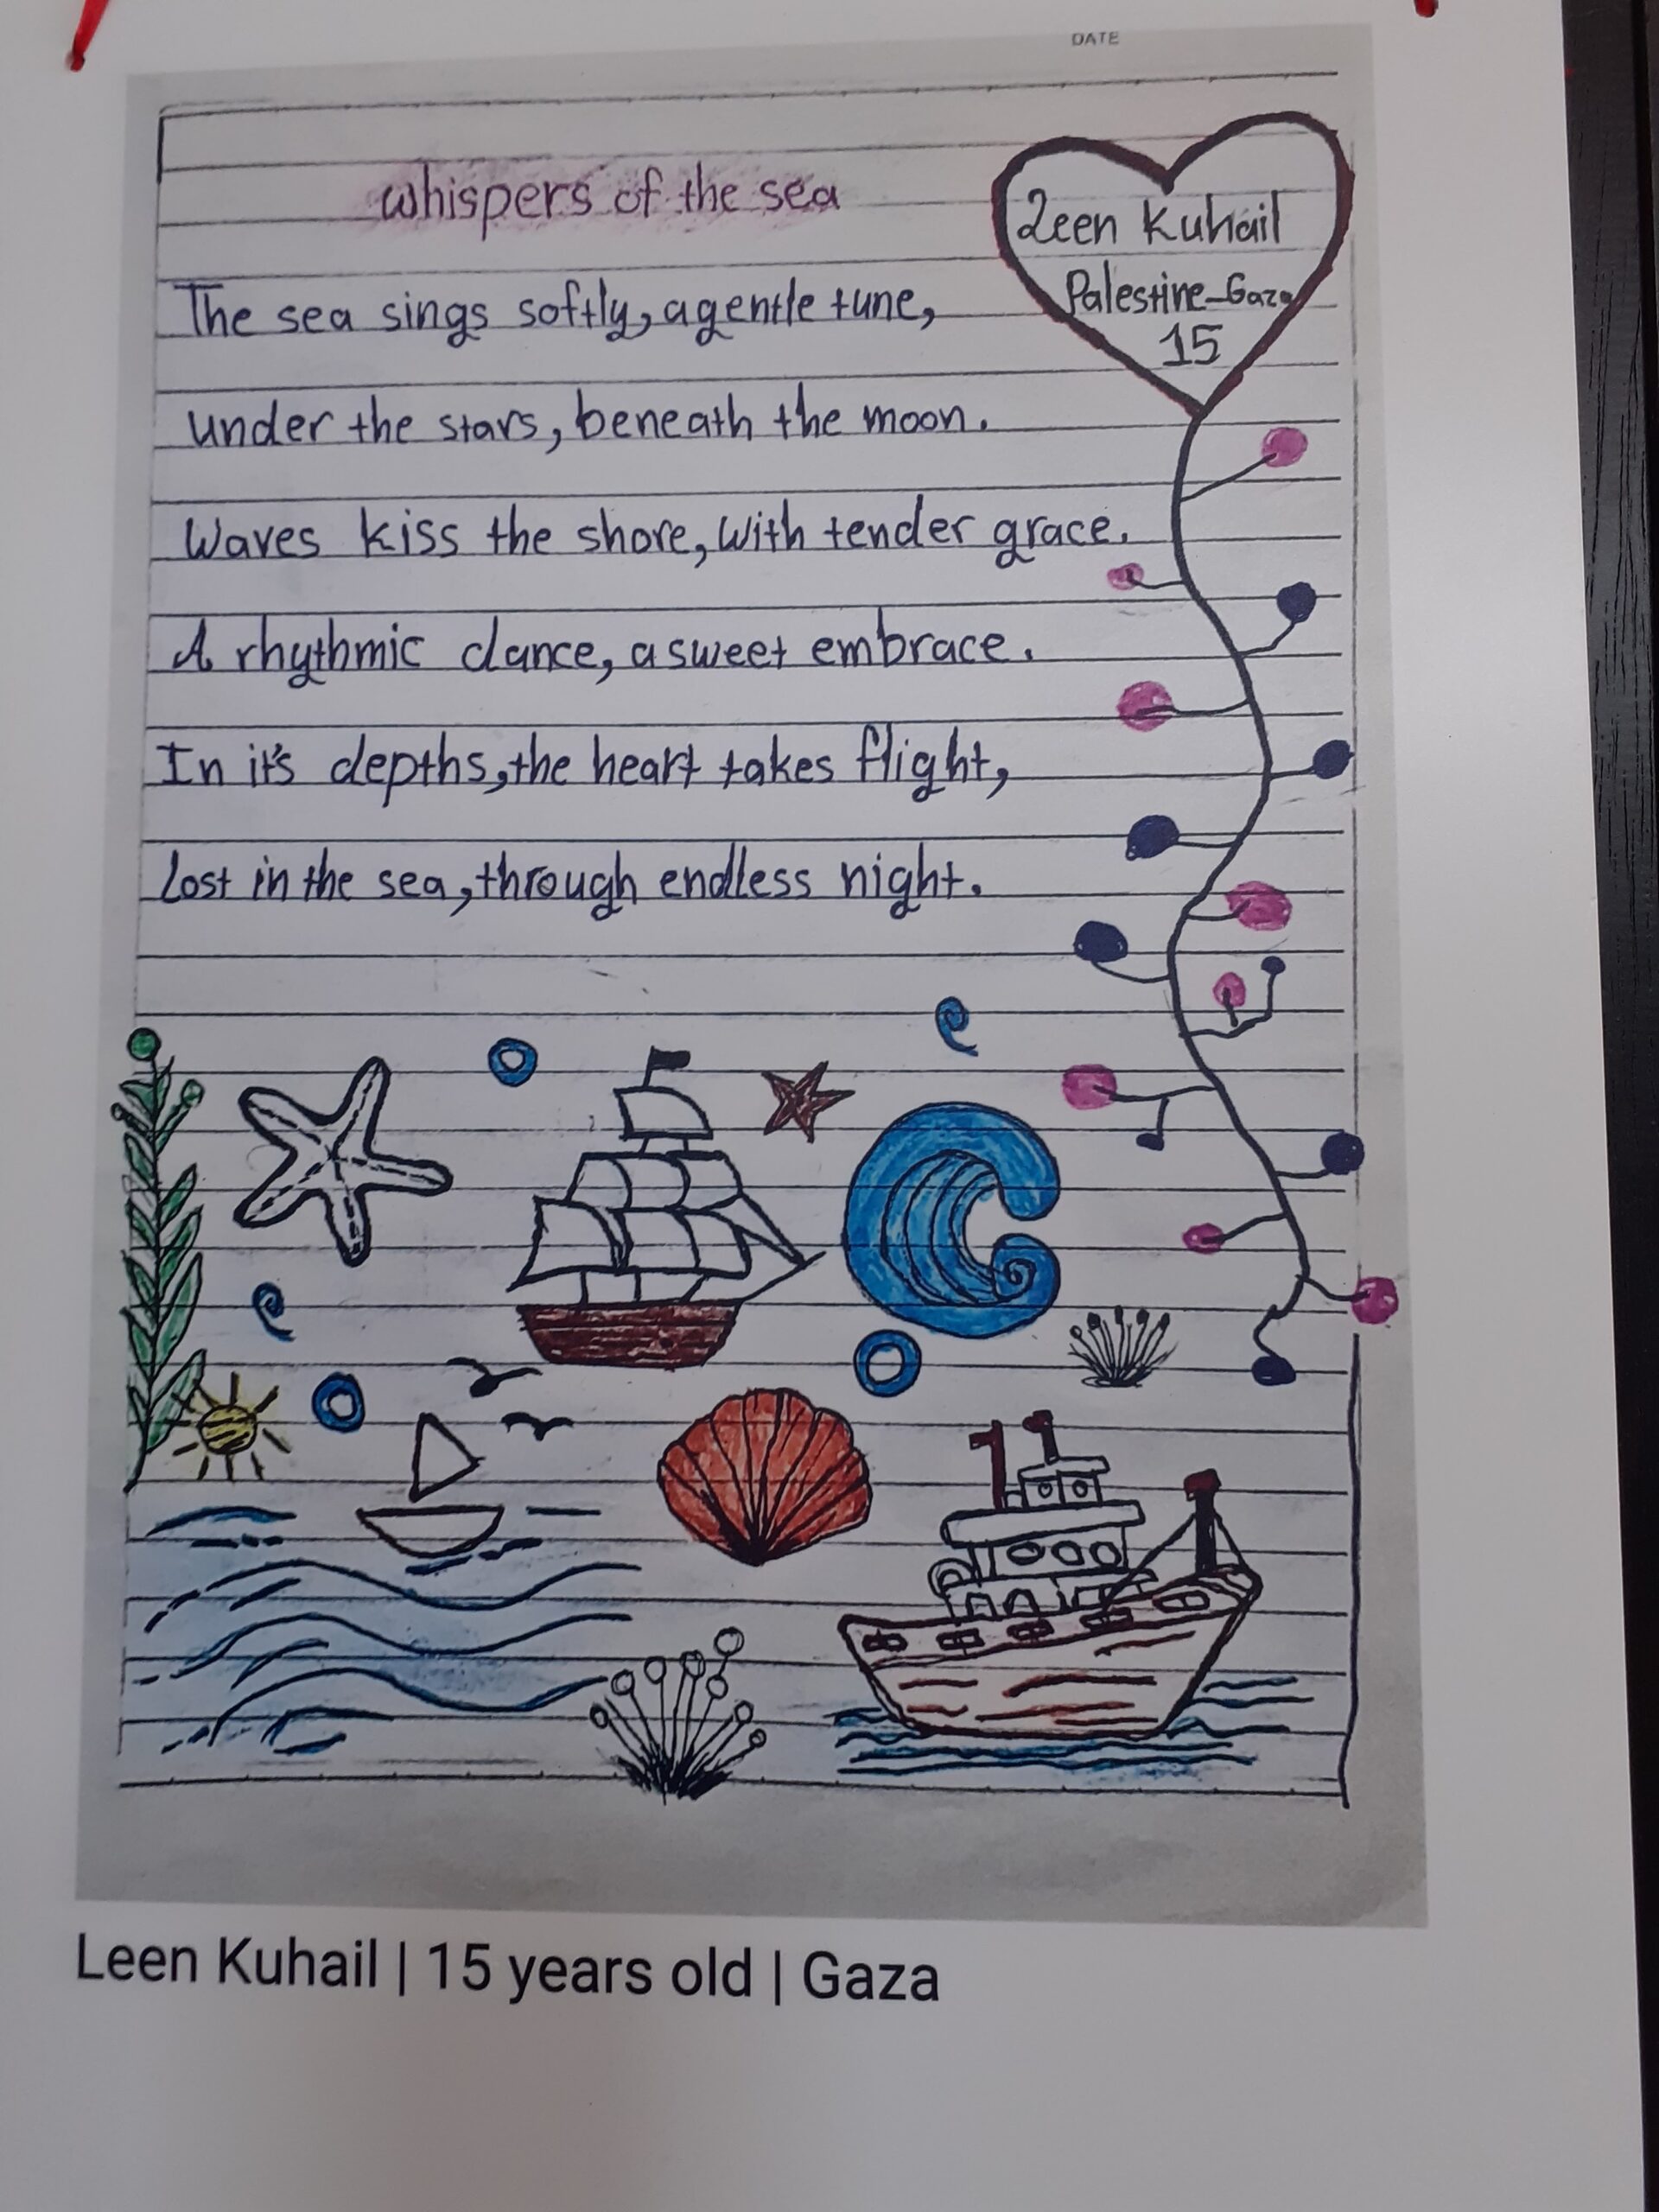 DATE
whispers of the sea
Leen Kuhail
Palestine-Gaza
15
The sea sings softly, a gentle tune,
under the stars, beneath the moon.
Waves kiss the shore, with tender grace.
A rhythmic dance, a sweet embrace.
In it's depths, the heart takes flight,
Lost in the sea, through endless night.
Leen Kuhail | 15 years old | Gaza